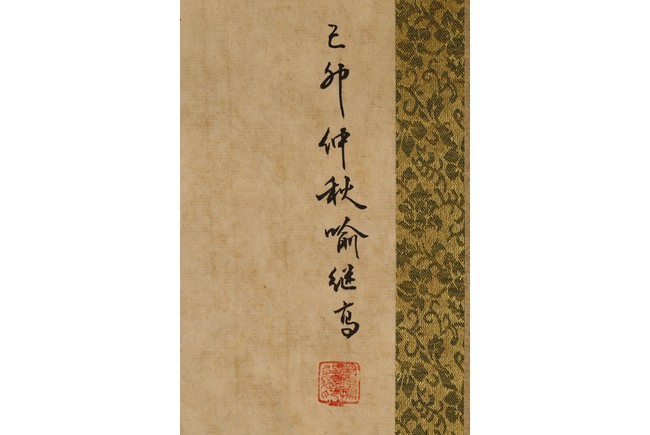 己卯仲秋喻继高